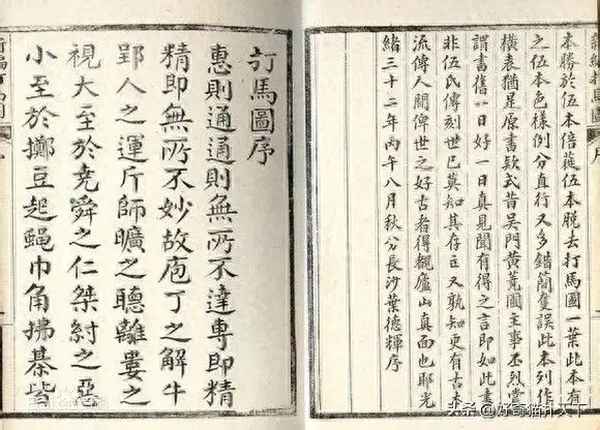 本勝於伍本倍蓰伍本脫去打馬圖一葉此本有
之伍本色樣例分直行又多錯簡隻誤此本列作
橫表猶是原書款式昔吳門黃蕘圃主事丕烈嘗
謂書舊一日好一日真見聞有得之言即如此書
非伍氏傳刻世已莫知其存亡又孰知更有古本
流傳人間俾世之好古者得覩廬山真面也耶光
緒三十二年丙午八月秋分長沙葉德輝序
打馬圖序
惠則通通則無所不達專即精
精即無所不妙故庖丁之解牛
郢人之運斤師曠之聽離婁之
視大至於堯舜之仁桀紂之惡
小至於擲豆起蠅巾角拂棊皆
头条 @好奇猫扑天下